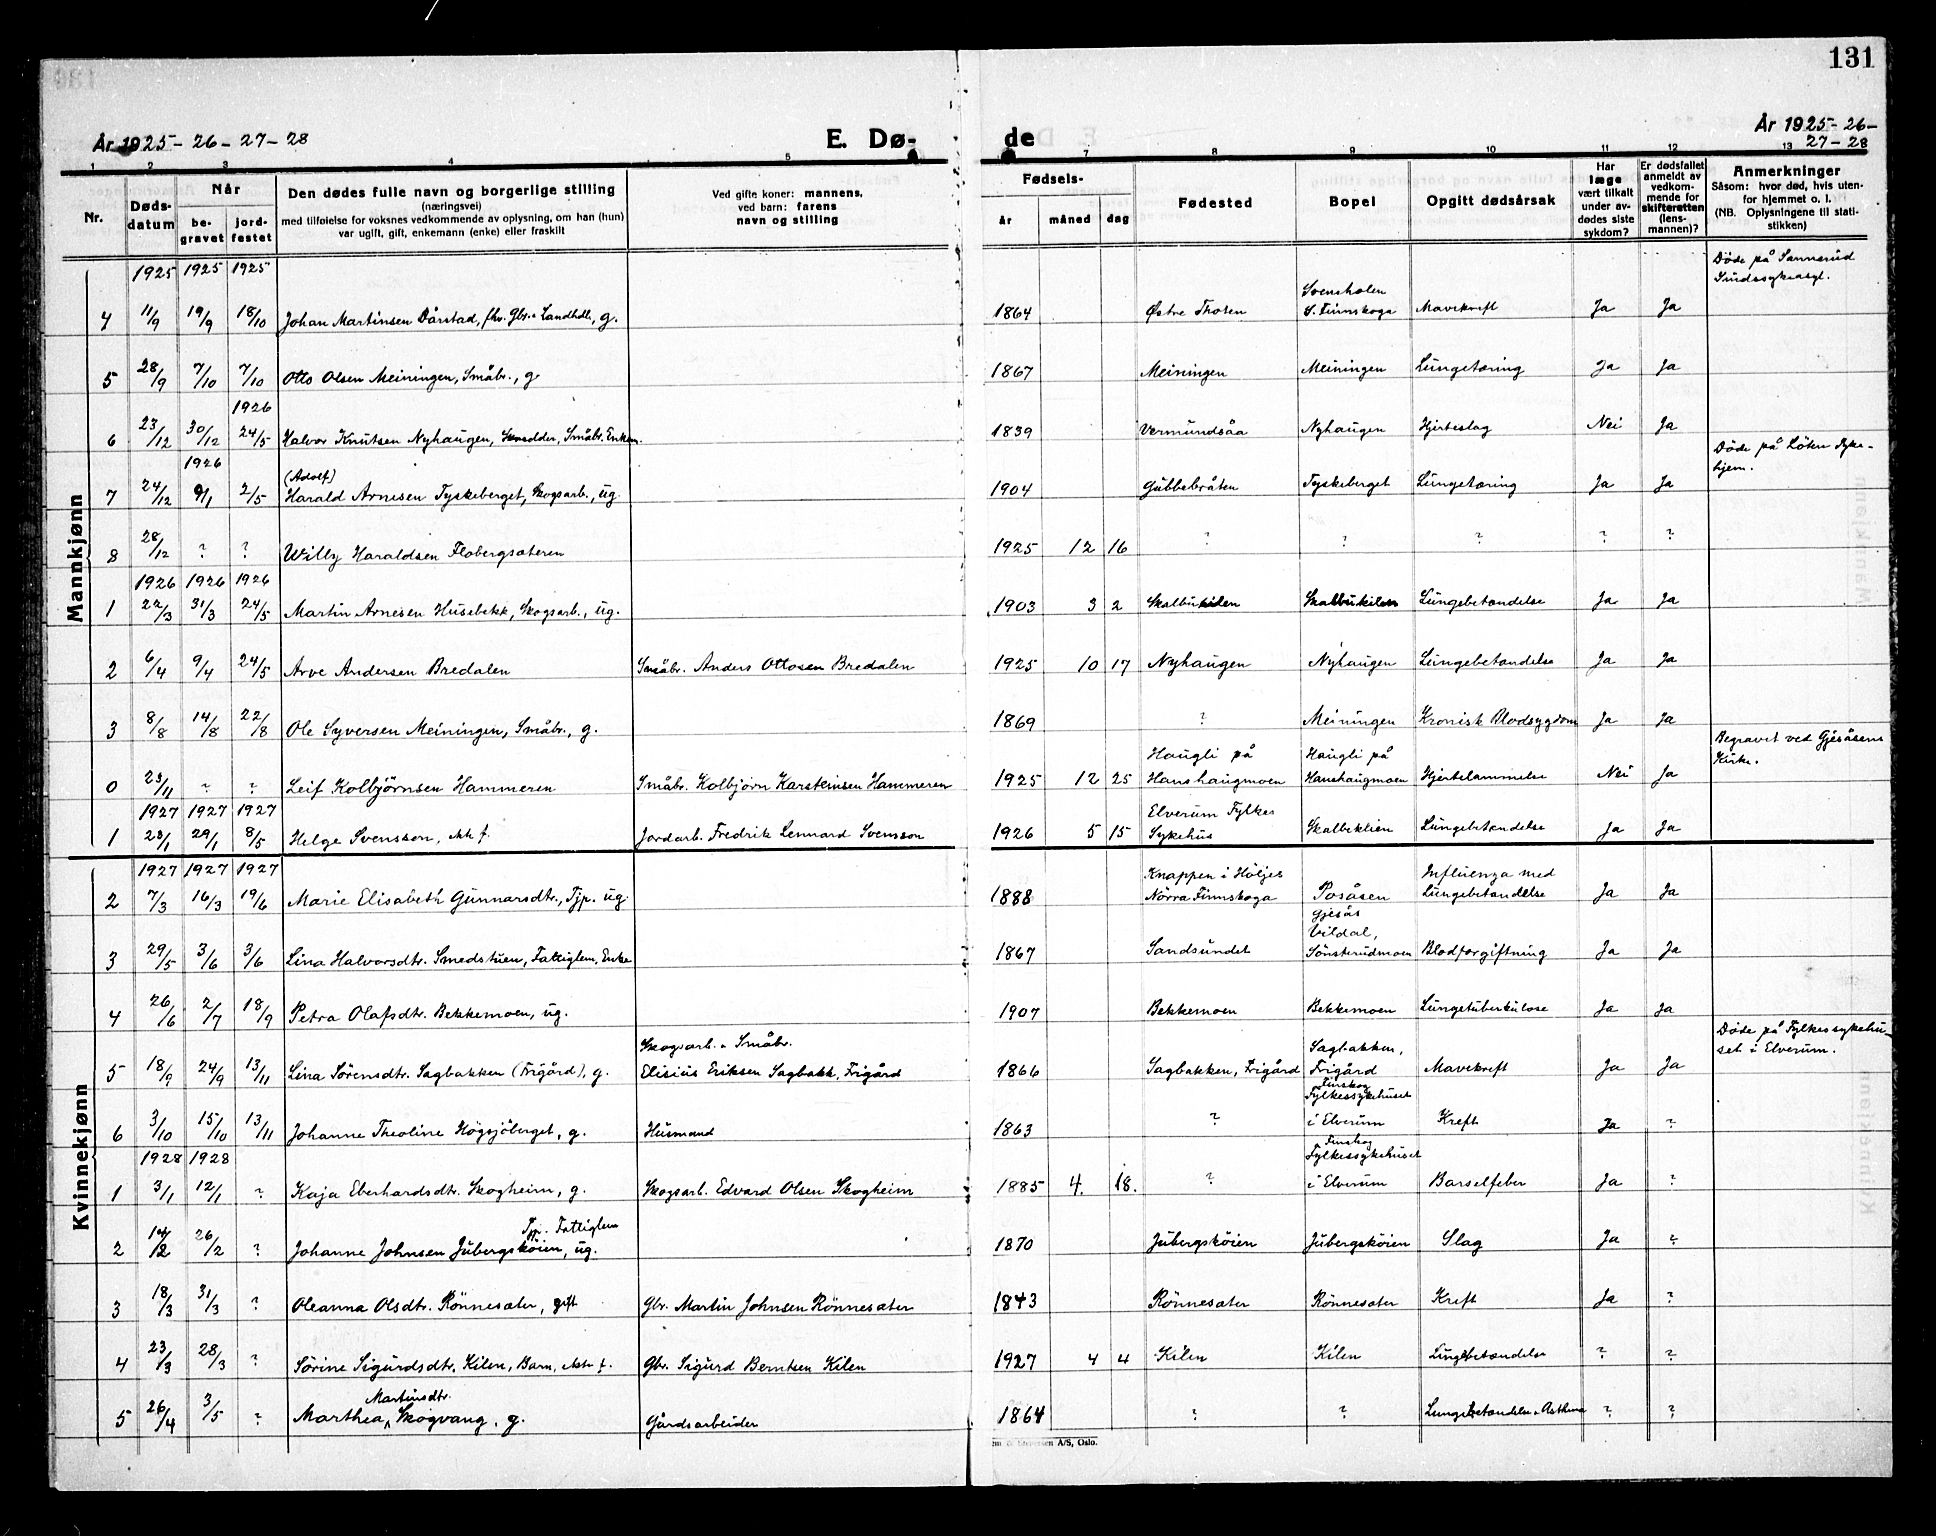 131
År 1925-26-27-28
E. Dø-
de
År 1925-26-
27-28
1 2 3 4 5 7 8 9 10 11 12 13
Nr.
Døds-
datum
Når
be-
gravet
jord-
festet
Den dødes fulle navn og borgerlige stilling
(næringsvei)
med tilføielse for voksnes vedkommende av oplysning, om han (hun)
var ugift, gift, enkemann (enke) eller fraskilt
Ved gifte koner: mannens,
ved barn: farens
navn og stilling
Fødsels-
år måned dag
Fødested
Bopel
Opgitt dødsårsak
Har
læge
vært tilkalt
under av-
dødes siste
sykdom?
Er dødsfallet
anmeldt av
vedkom-
mende for
skifteretten
(lens-
mannen)?
Anmerkninger
Såsom: hvor død, hvis uten-
for hjemmet o. l.
(NB. Oplysningene til stati-
stikken)
Mannkjønn
1925 1925 1925
Døde på Sannerud
Sindssykeasyl.
Svensholen
4 11/9 19/9 18/10 Johan Martinsen Dårstad, fhv. Gbr. & Landhdl., g. 1864 Østre Thoten S. Finnskoga Mavekreft Ja Ja
5 28/9 7/10 7/10 Otto Olsen Meiningen, Småbr., g. 1867 Meiningen Meiningen Lungetæring Ja Ja
1926
6 23/12 30/12 24/5 Halvor Knutsen Nyhaugen, Skredder, Småbr. Enkem. 1839 Vermundsåa Nyhaugen Hjerteslag Nei Ja
1926
(Adolf)
Døde på Löten syke-
hjem.
7 24/12 9/1 2/5 Harald Arnesen Tyskeberget, Skogsarb., ug. 1904 Gubbebråten Tyskeberget Lungetæring Ja Ja
8 28/12 ? ? Willy Haraldsen Flobergsæteren 1925 12 16 ? ? ? ? ?
1926 1926 1926
1 22/3 31/3 24/5 Martin Arnesen Husebekk, Skogsarb., ug. 1903 3 2 Skalbukilen Skalbukilen Lungebetændelse Ja Ja
2 6/4 9/4 24/5 Arve Andersen Bredalen Småbr. Anders Ottosen Bredalen 1925 10 17 Nyhaugen Nyhaugen Lungebetændelse Ja Ja
3 8/8 14/8 22/8 Ole Syversen Meiningen, Småbr., g. 1869 ? Meiningen Kronisk Blodsygdom Ja Ja
Haugli på Haugli på
Begravet ved Gjesåsens
Kirke.
0 23/11 ? ? Leif Kolbjörnsen Hammeren Småbr. Kolbjörn Karstensen Hammeren 1925 12 25 Hanshaugmoen Hanshaugmoen Hjertelammelse Nei Ja
1927 1927 1927
Elverum Fylkes
1 23/1 29/1 8/5 Helge Svensson, ekte f. Jordarb. Fredrik Lennard Svensson 1926 5 15 Sykehus Skalbekilen Lungebetændelse Ja Ja
Kvinnekjønn
1927 1927 1927
Knappen i Höljes Influenza med
2 7/3 16/3 19/6 Marie Elisabeth Gunnarsdtr., Tjp. ug. 1888 Norra Finnskoga Posåsen Lungebetændelse Ja Ja
Gjesås
Vildal,
3 29/5 3/6 3/6 Lina Halvorsdtr. Smedstuen, Fattiglem, Enke 1867 Sandsundet Sönsterudmoen Blodforgiftning Ja Ja
4 26/6 2/7 18/9 Petra Olafsdtr. Bekkemoen, ug. 1907 Bekkemoen Bekkemoen Lungetuberkulose Ja Ja
Skogsarb. & Småbr. Sagbakken,
Døde på Fylkessykehu-
set i Elverum.
5 18/9 24/9 13/11 Lina Sörensdtr. Sagbakken (Frigård), g. Elisius Eriksen Sagbakk, Frigård 1866 Sagbakken, Frigård Frigård Mavekreft Ja Ja
Finskog
Fylkessykehuset
6 3/10 15/10 13/11 Johanne Theoline Högsjöberget, g. Husmand 1863 ? i Elverum Kreft Ja ?
1928 1928
Finskog
Fylkessykehuset
1 3/1 12/1 ? Kaja Eberhardsdtr. Skogheim, g. Skogsarb. Edvard Olsen Skogheim 1885 4. 18. ? i Elverum Barselfeber Ja ?
Tjp. Fattiglem
2 14/2 26/2 ? Johanne Johnsen Jubergskoien, ug. 1870 Jubergskoien Jubergskoien Slag Ja ?
3 18/3 31/3 ? Oleanna Olsdtr. Rönnesæter, gift Gbr. Martin Johnsen Rönnesæter 1843 Rönnesæter Rönnesæter Kreft Ja ?
4 23/3 28/3 ? Sörine Sigurdsdtr. Kilen, Barn, ekte f. Gbr. Sigurd Berntsen Kilen 1927 4 4 Kilen Kilen Lungebetændelse ? ?
Martinsdtr.
5 26/4 3/5 ? Marthea Skogvang, g. Gårdsarbeider 1864 ? ? Lungebetændelse & Asthma ? ?
A/S, Oslo.